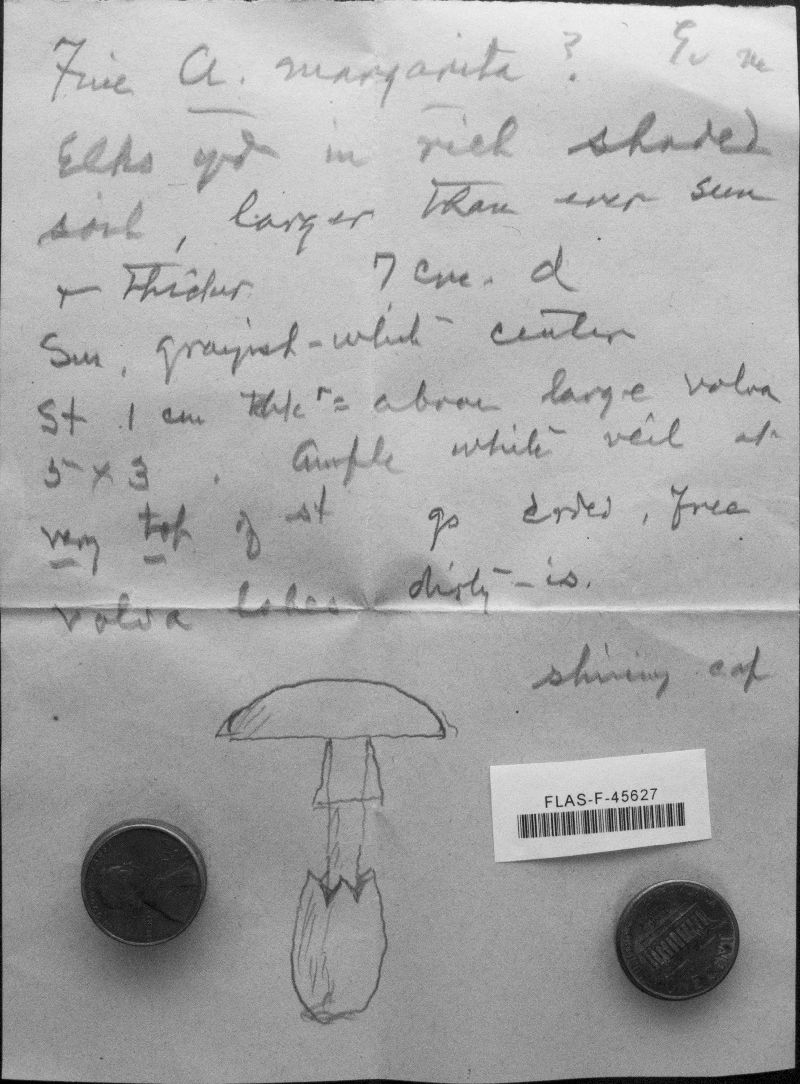 Fine A. margarita ? G. m
Elks yd in rich shaded
soil, larger than ever seen
+ thicker 7 cm. d
Sm, grayish-white center
St 1 cm thk = above large volva
5 x 3 . Ample white veil at
very top of st gs crded, free
volva lobes dirty-is.
shining cap
FLAS-F-45627